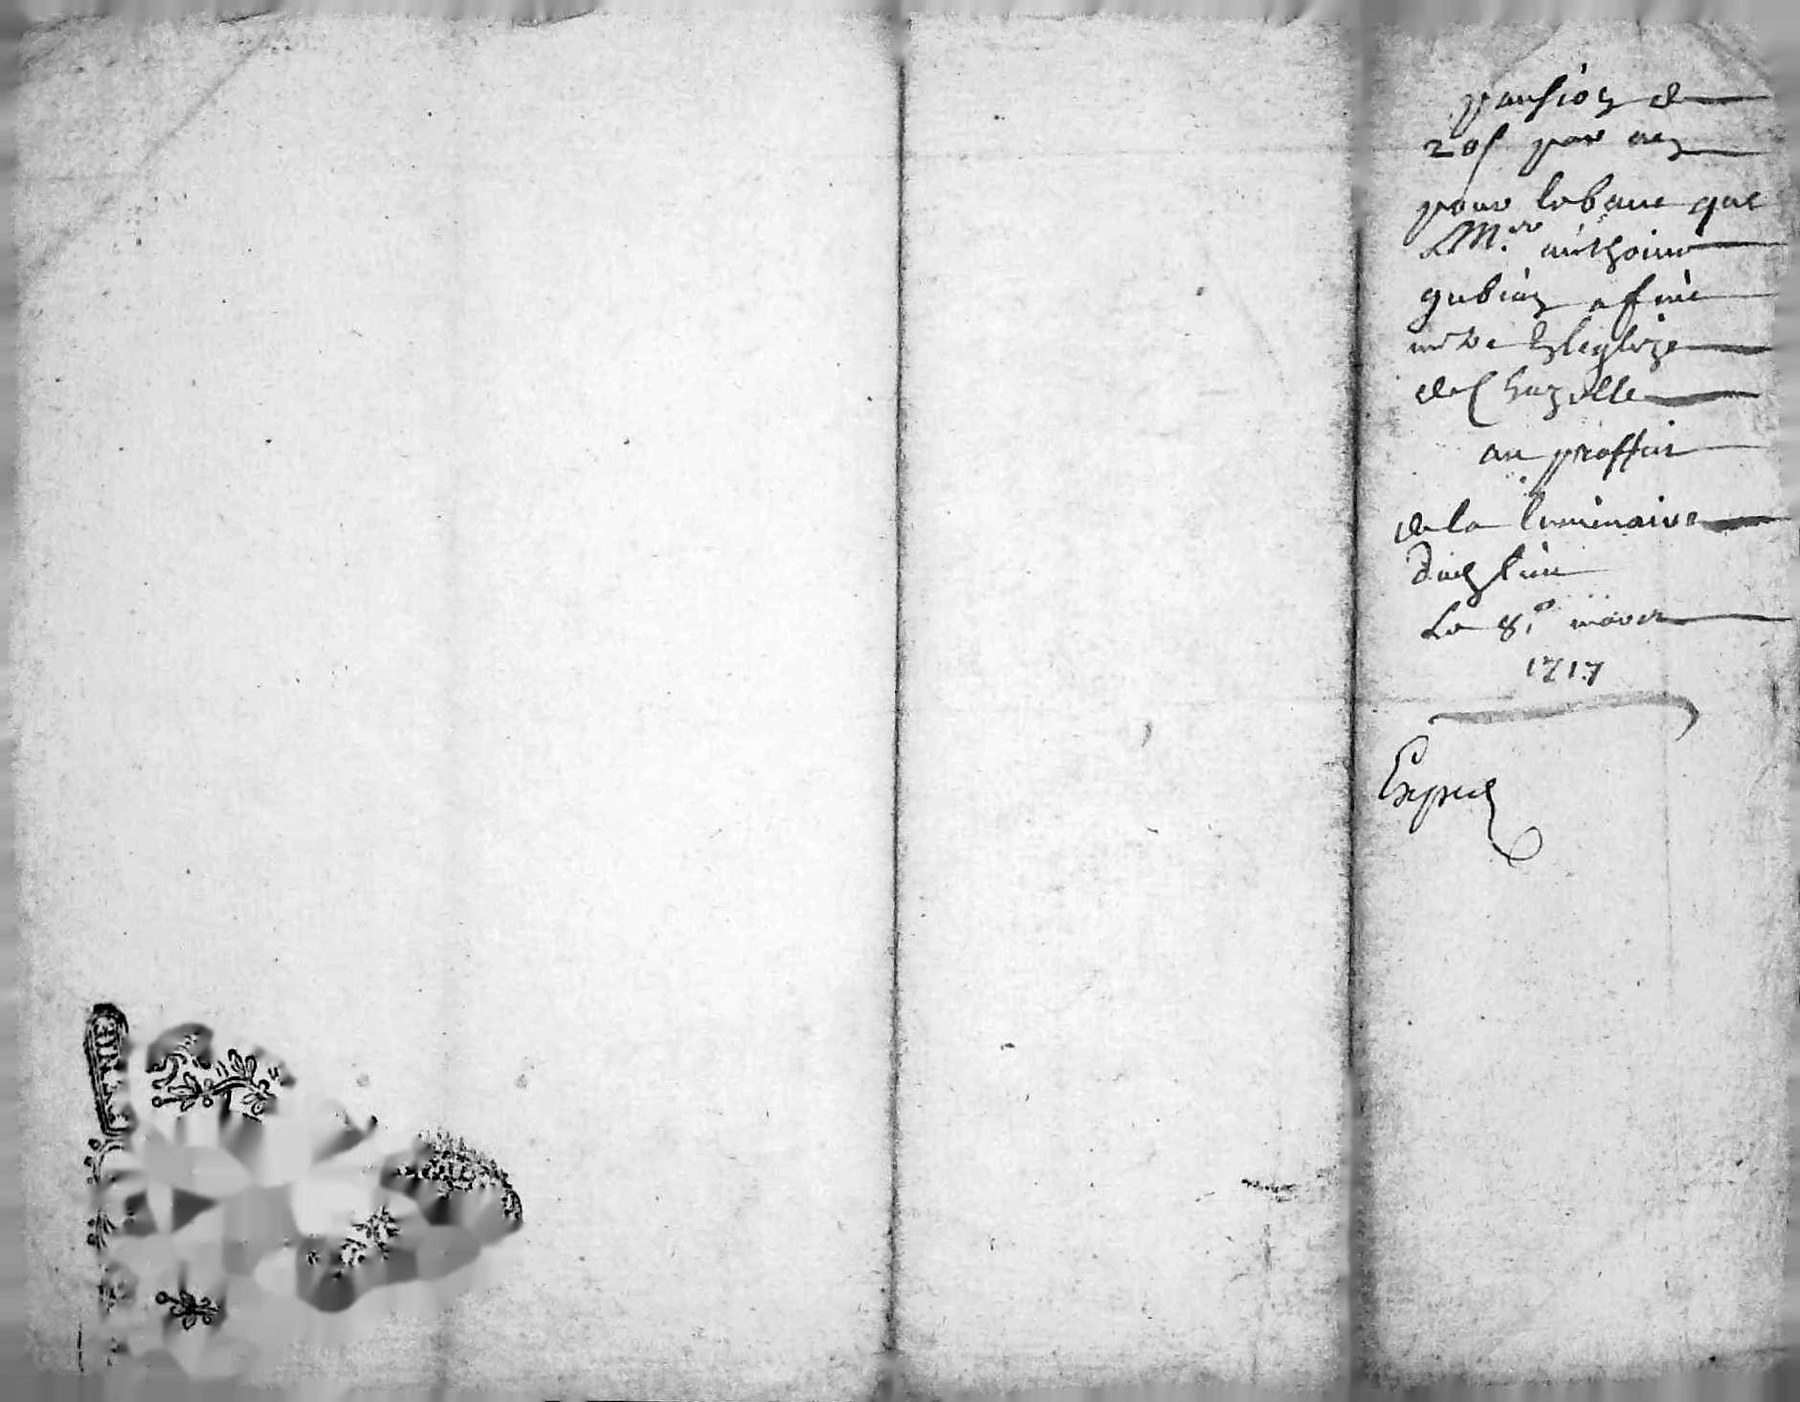 pansion de
20s par an
pour lebanc que
Mr. anthoine
gubian a fixe
de Lesglize
de Chazelle
au proffit
dela luminaire
Le 8e mars
1717
Exped